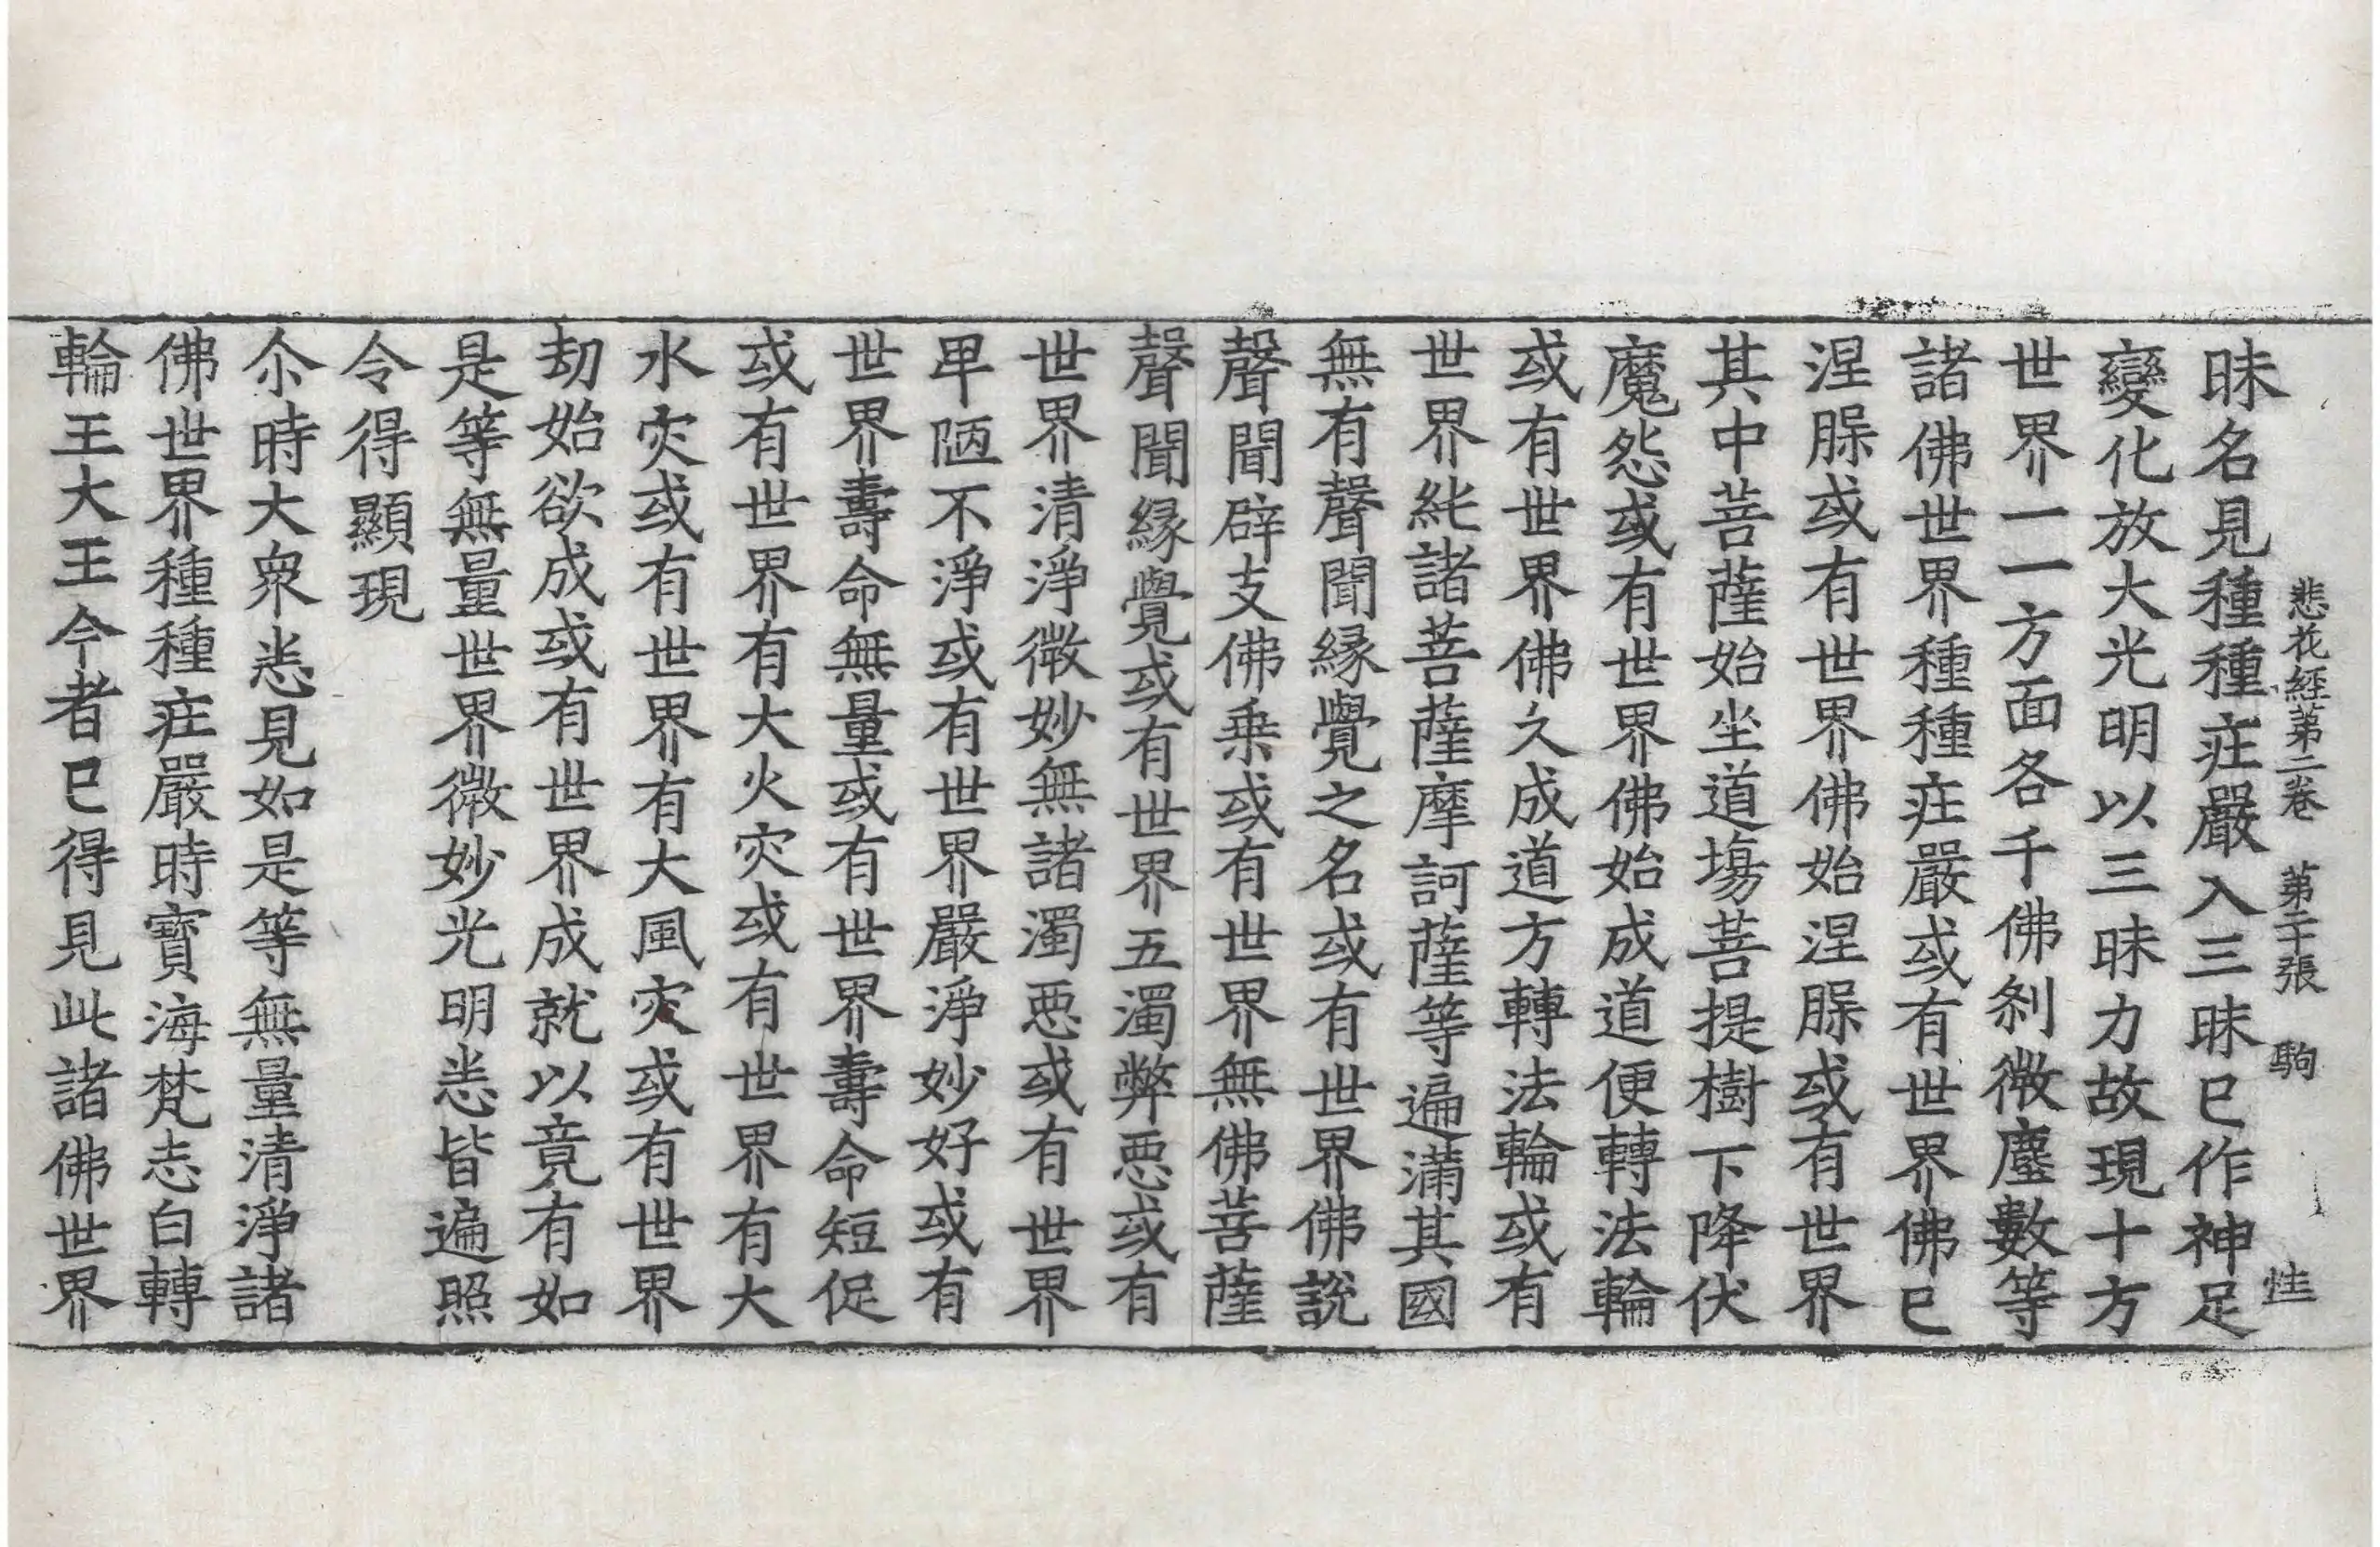 悲花經第二卷 第二十張 駒 㤬
昧名見種種疘嚴入三昧已作神足
變化放大光明以三昧力故現十方
世界一一方面各千佛刹微塵數等
諸佛世界種種疘嚴或有世界佛已
涅脲或有世界佛始涅脲或有世界
其中菩薩始坐道塲菩提樹下降伏
魔怨或有世界佛始成道便轉法輪
或有世界佛久成道方轉法輪或有
世界純諸菩薩摩訶薩等遍滿其國
無有聲聞縁覺之名或有世界佛說
聲聞辟支佛乗或有世界無佛菩薩
聲聞縁覺或有世界五濁弊惡或有
世界清淨微妙無諸濁惡或有世界
卑陋不淨或有世界嚴淨妙好或有
世界壽命無量或有世界壽命短促
或有世界有大火灾或有世界有大
水灾或有世界有大風灾或有世界
劫始欲成或有世界成就以竟有如
是等無量世界微妙光明悉皆遍照
令得顯現
尒時大衆悉見如是等無量清淨諸
佛世界種種疘嚴時寶海梵志白轉
輪王大王今者已得見此諸佛世界